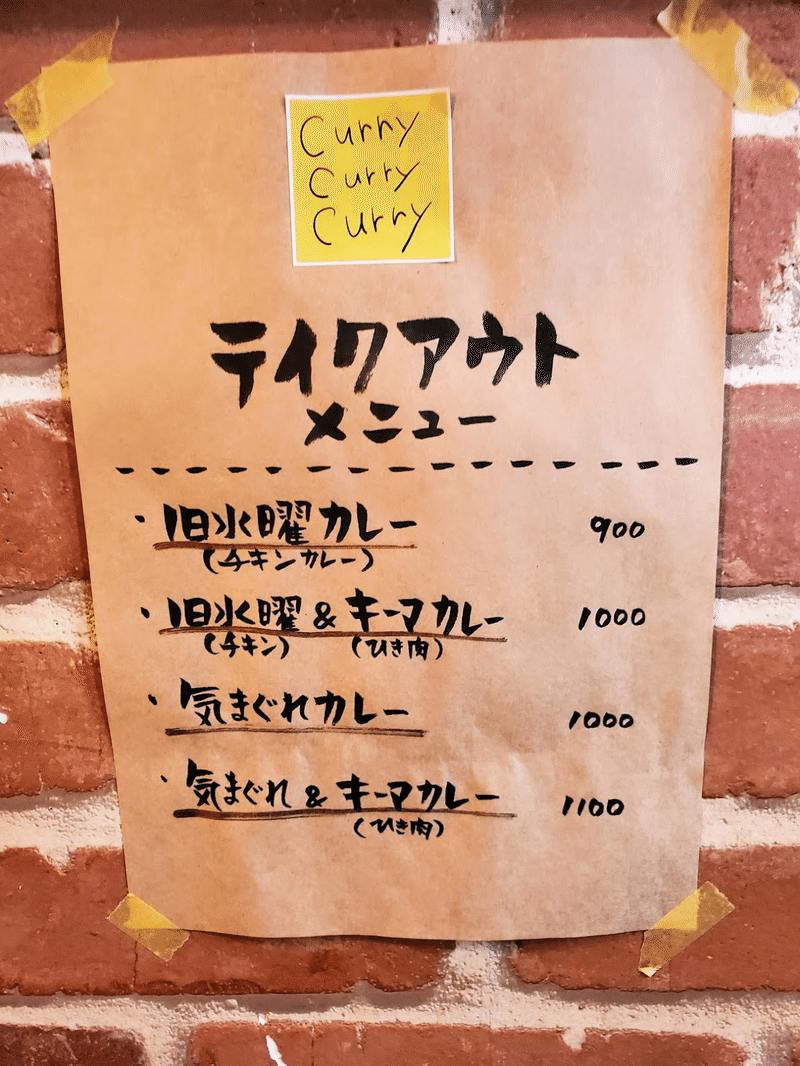 Curry
Curry
Curry
テイクアウト
メニュー
・旧水曜カレー 900
(チキンカレー)
・旧水曜&キーマカレー 1000
(チキン) (ひき肉)
・気まぐれカレー 1000
・気まぐれ&キーマカレー 1100
(ひき肉)